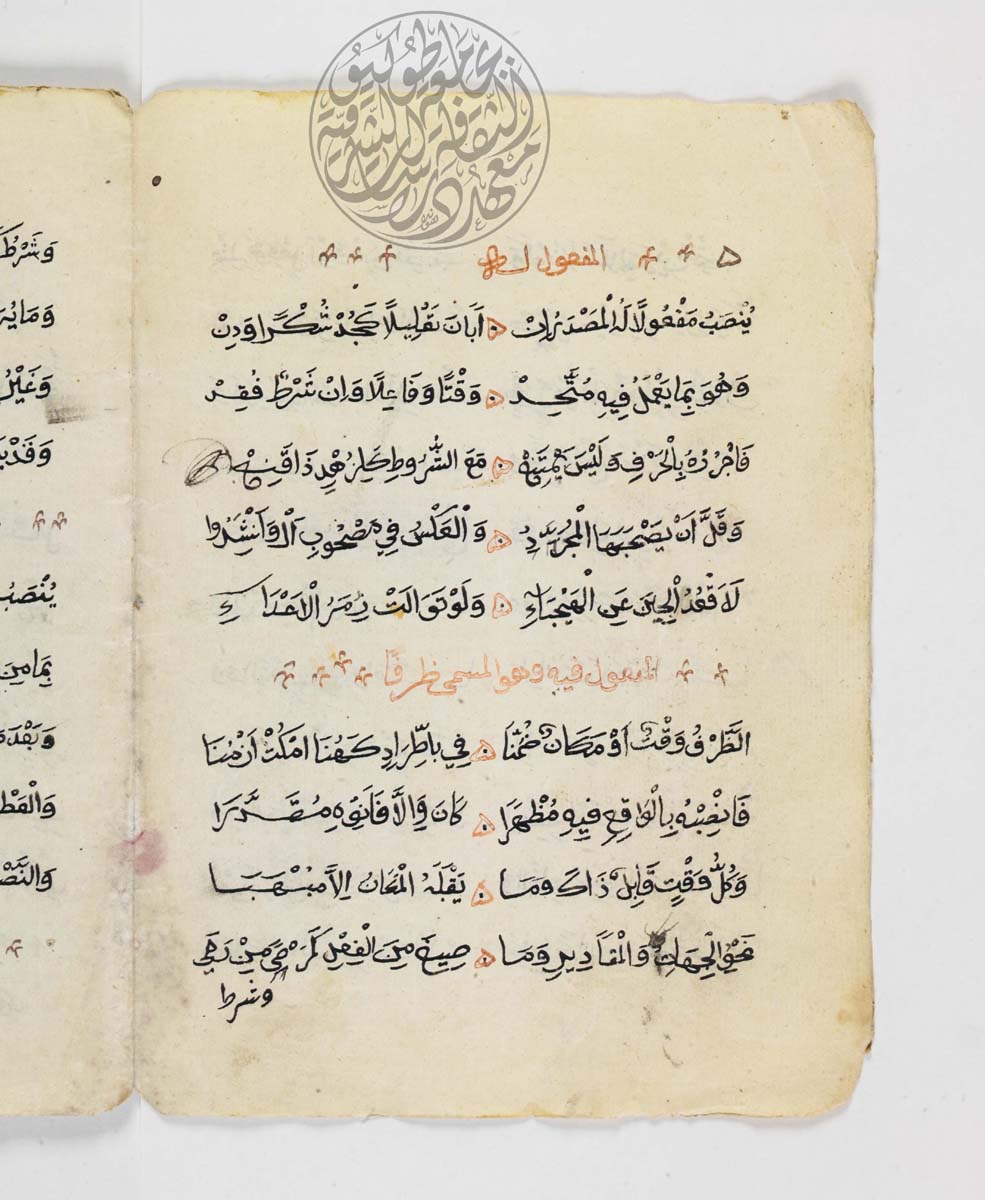 معهد دراسات الثقافة الشرقية بجامعة طوكيو
المفعول له
يُنْصَبُ مَفْعُولًا لَهُ الْمَصْدَرُ اِنْ أَبَانَ تَعْلِيلًا كَجُدْ شُكْرًا وَدِنْ
وَهُوَ بِمَا يَعْمَلُ فِيهِ مُتَّحِدْ وَقْتًا وَفَاعِلًا وَاِنْ شَرْطٌ فُقِدْ
فَاجْرُرْهُ بِالْحَرْفِ وَلَيْسَ يَمْتَنِعْ مَعَ الشُّرُوطِ كَلِزُهْدٍ ذَا قَنِعْ
وَقَلَّ أَنْ يَصْحَبَهَا الْمُجَرَّدُ وَالْعَكْسُ فِي مَصْحُوبِ اَلْ وَاَنْشَدُوا
لَا أَقْعُدُ الْجُبْنَ عَنِ الْهَيْجَاءِ وَلَوْ تَوَالَتْ زُمَرُ الْاَعْدَاءِ
المفعول فيه وهو المسمى ظرفا
الظَّرْفُ وَقْتٌ اَوْ مَكَانٌ ضُمِّنَا فِي بِاطِّرَادٍ كَهُنَا امْكُثْ أَزْمُنَا
فَانْصِبْهُ بِالْوَاقِعِ فِيهِ مُظْهَرَا كَانَ وَاِلَّا فَانْوِهِ مُقَدَّرَا
وَكُلُّ وَقْتٍ قَابِلٌ ذَاكَ وَمَا يَقْبَلُهُ الْمَكَانُ اِلَّا مُبْهَمَا
نَحْوُ الْجِهَاتِ وَالْمَقَادِيرِ وَمَا صِيغَ مِنَ الْفِعْلِ كَمَرْمًى مِنْ رَمَى
وشرط
وَشَرْطُ
وَغَيْرُ
يُنْصَبُ
بِمَا مِنَ
وَبَعْدَ